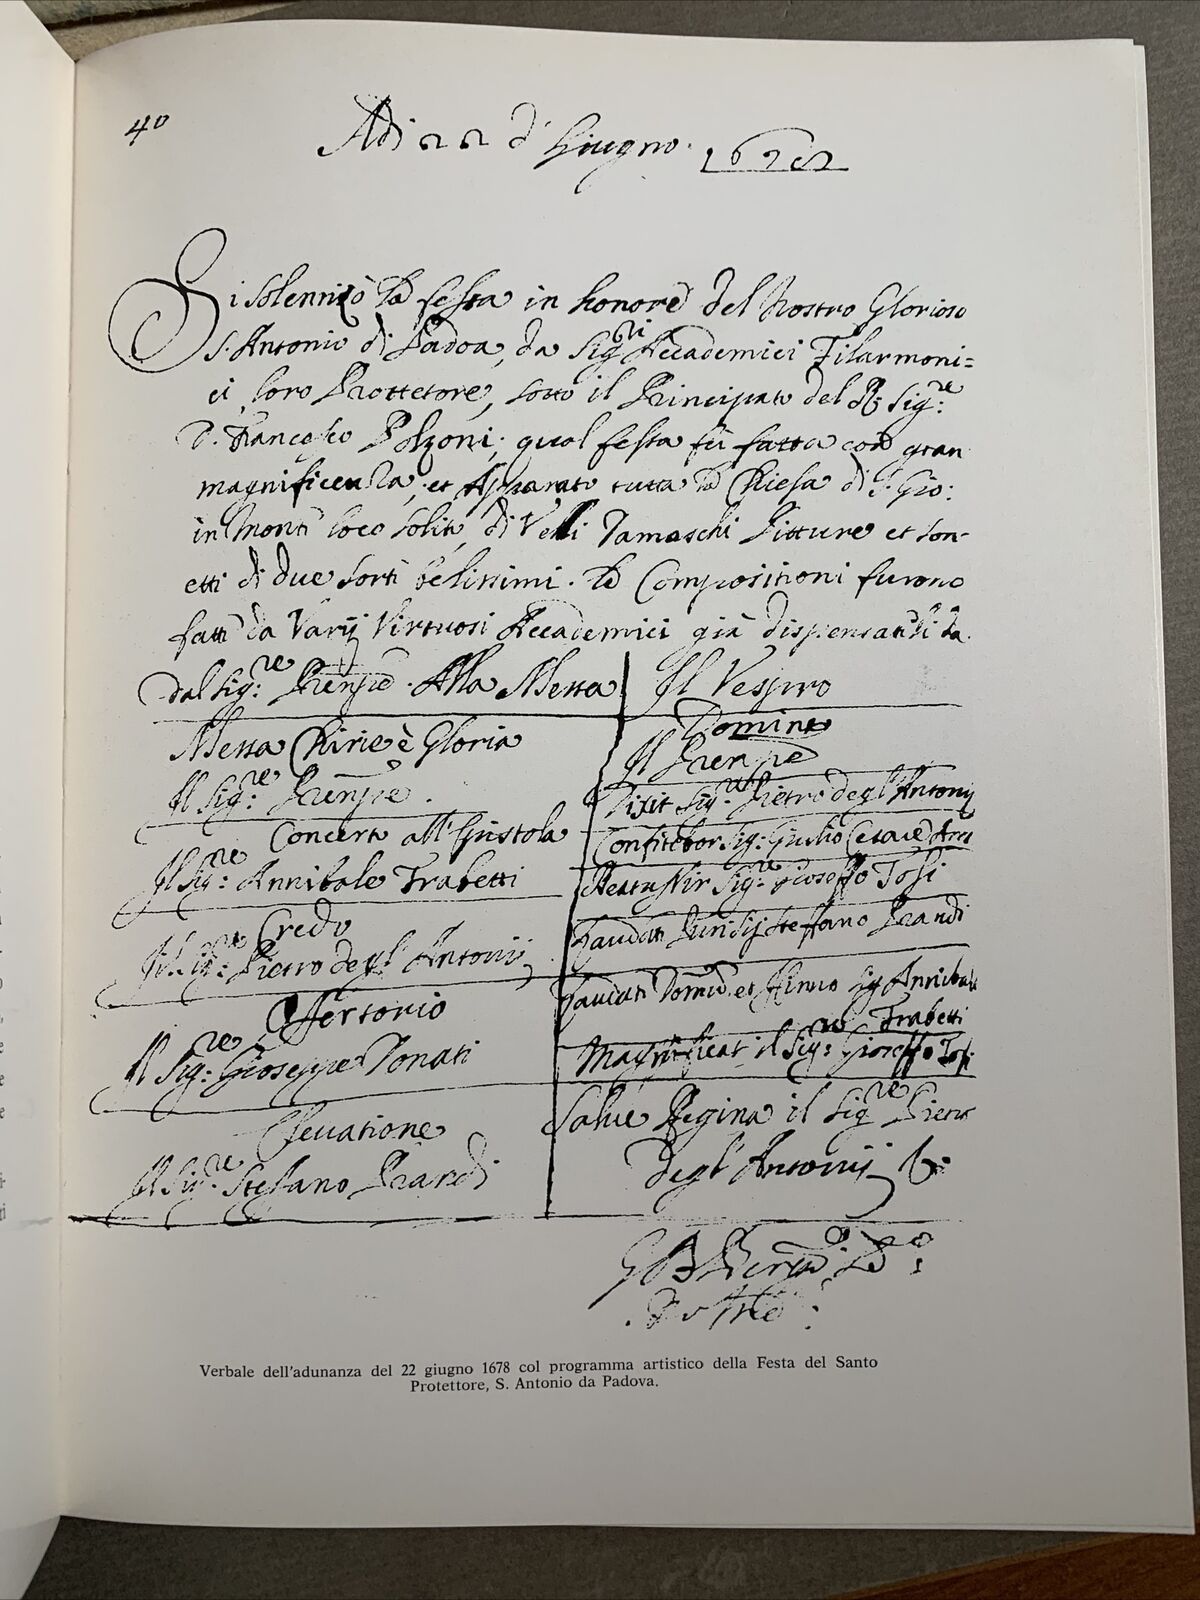 40
Adi 22 d' Giugno. 1678
Si Solennizò la festa in honore del Nostro Glorioso
S. Antonio di Padoa, da Sig.ri Accademici Filarmoni=
ci, loro Prottetore, sotto il Principato del R. Sig.re
D. Francesco Polzoni; qual festa fù fatta con gran
magnificenza, et Apparato tutta la Chiesa di S. Gio:
in Monti loco solito, di Velli Damaschi Pitture et son-
etti di due sorti belissimi. le Compositioni furono
fatti da Varij Virtuosi Accademici già dispensati
dal Sig.re Prenpe. Alla Messa
Messa Chirie è Gloria
Il Sig.re Prenpe.
Concerto all'Epistola
Il Sig.re Annibale Frabetti
Credo
Il Sig.re Pietro degl'Antonij
Offertorio
Il Sig.re Gioseppe Donati
Elevatione
Il Sig.re Stefano Prandi
Il Vespro
Domine
Il Prenpe
Dixit Sig.re Pietro degl'Antonij
Confitebor Sig: Giulio Cesare
Beatus Vir Sig.re Gioseffo Tosi
Laudati Steffano Prandi
Laudati et Hinno Sig Annibale
Frabetti
Magnificat il Sig.re Gioseffo Tosi
Salve Regina il Sig.re Pietro
degl'Antonij
G B
Verbale dell'adunanza del 22 giugno 1678 col programma artistico della Festa del Santo
Protettore, S. Antonio da Padova.